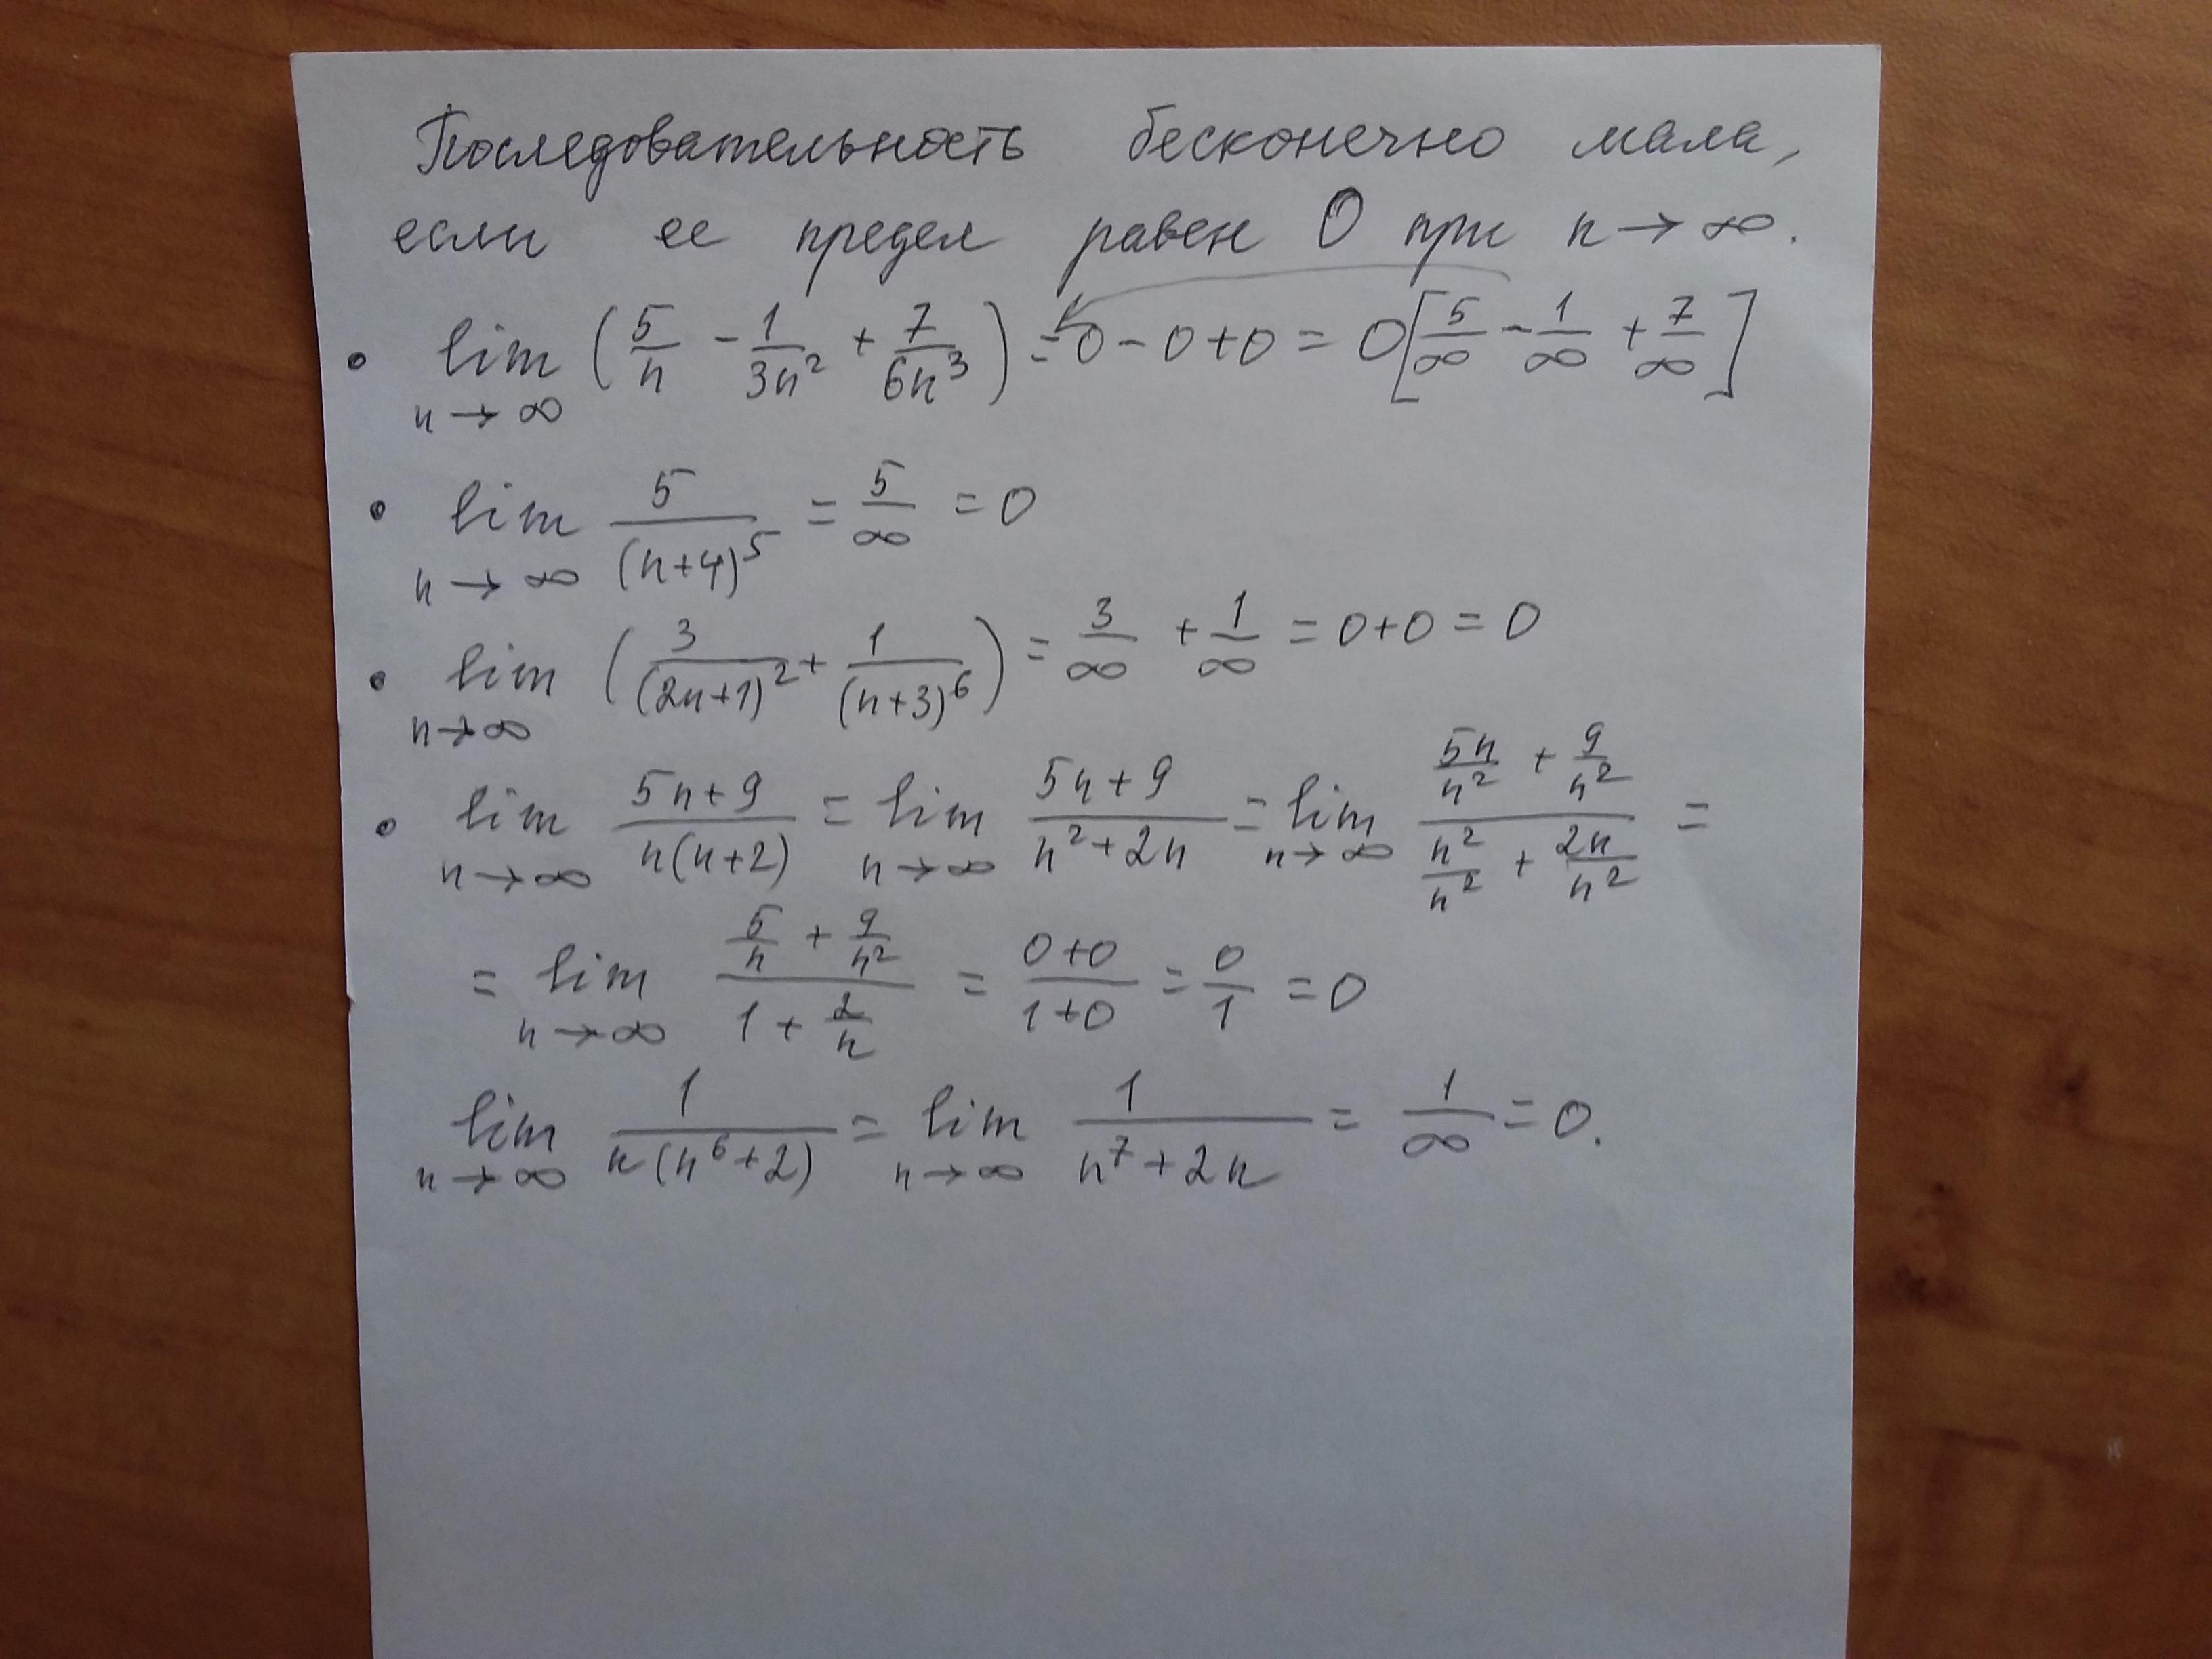 Последовательность бесконечно мала,
если ее предел равен 0 при n → ∞.
• lim n→∞ (5/n - 1/3n² + 7/6n³) = 0 - 0 + 0 = 0 [5/∞ - 1/∞ + 7/∞]
• lim n→∞ 5/(n+4)⁵ = 5/∞ = 0
• lim n→∞ (3/(2n+1)² + 1/(n+3)⁶) = 3/∞ + 1/∞ = 0+0 = 0
• lim n→∞ (5n+9)/(n(n+2)) = lim n→∞ (5n+9)/(n²+2n) = lim n→∞ (5n/n² + 9/n²)/(n²/n² + 2n/n²) =
= lim n→∞ (5/n + 9/n²)/(1 + 2/n) = (0+0)/(1+0) = 0/1 = 0
lim n→∞ 1/(n(n⁶+2)) = lim n→∞ 1/(n⁷+2n) = 1/∞ = 0.